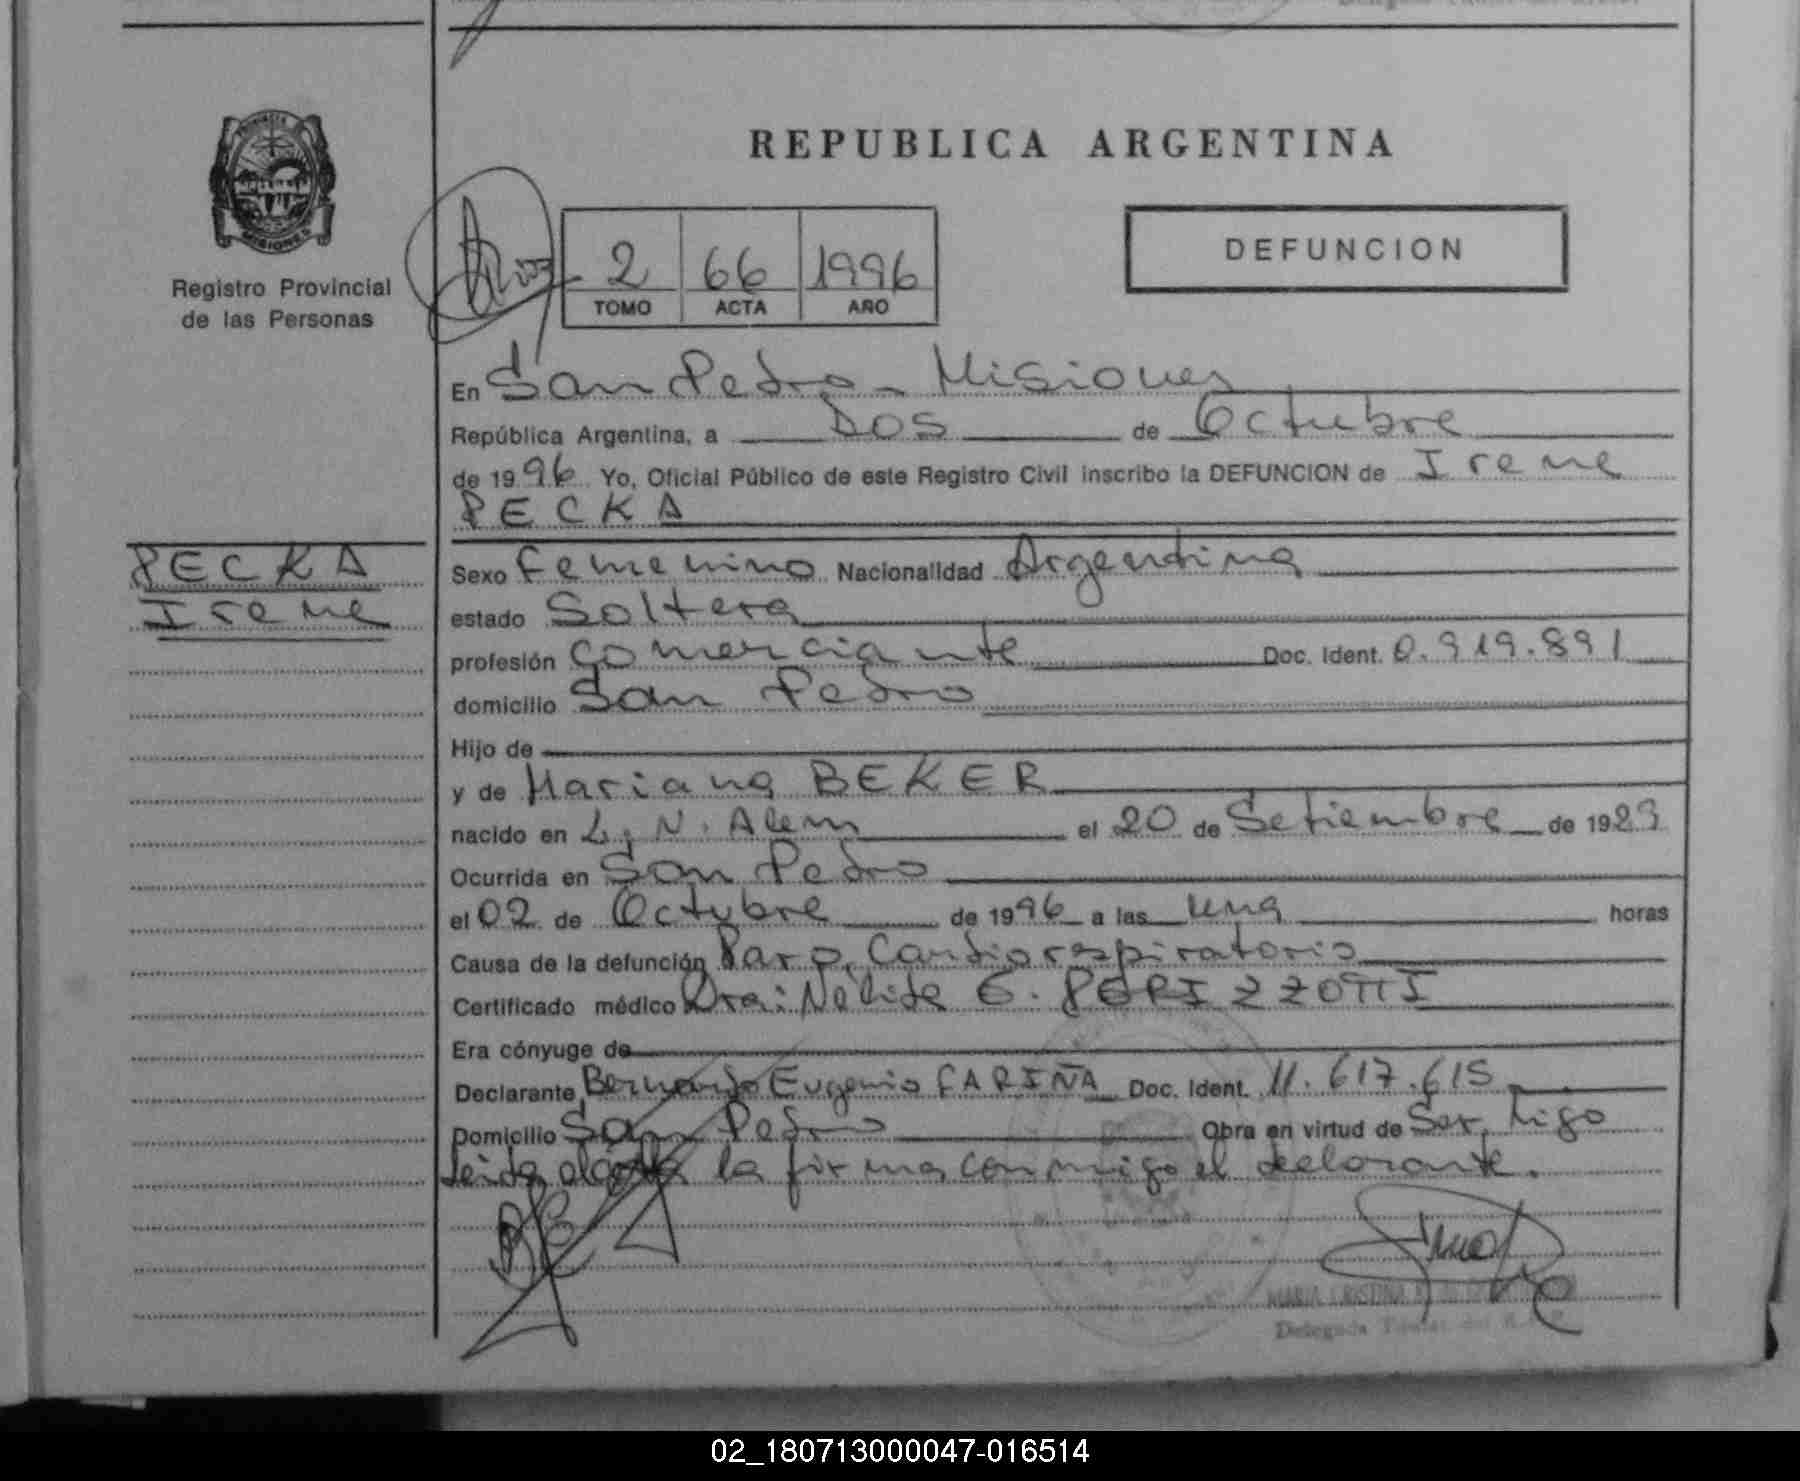 REPUBLICA ARGENTINA
PROVINCIA
MISIONES
Registro Provincial
de las Personas
2 66 1996
TOMO ACTA AÑO
DEFUNCION
En San Pedro - Misiones
República Argentina, a Dos de Octubre
de 1996 Yo, Oficial Público de este Registro Civil inscribo la DEFUNCION de Irene
PECKA
PECKA
Irene
Sexo Femenino Nacionalidad Argentina
estado Soltera
profesión Comerciante Doc. Ident. 0.919.891
domicilio San Pedro
Hijo de
y de Mariana BEKER
nacido en L. N. Alem el 20 de Setiembre de 1929
Ocurrida en San Pedro
el 02 de Octubre de 1996 a las una horas
Causa de la defunción Paro Cardiorespiratorio
Certificado médico Dra: Nelida G. PERIZZOTTI
Era cónyuge de
Declarante Bernardo Eugenio FARIÑA Doc. Ident. 11.617.615
Domicilio San Pedro Obra en virtud de Ser hijo
leida el acta la firma conmigo el declarante.
MARIA CRISTINA
Delegada Titular del
02_180713000047-016514